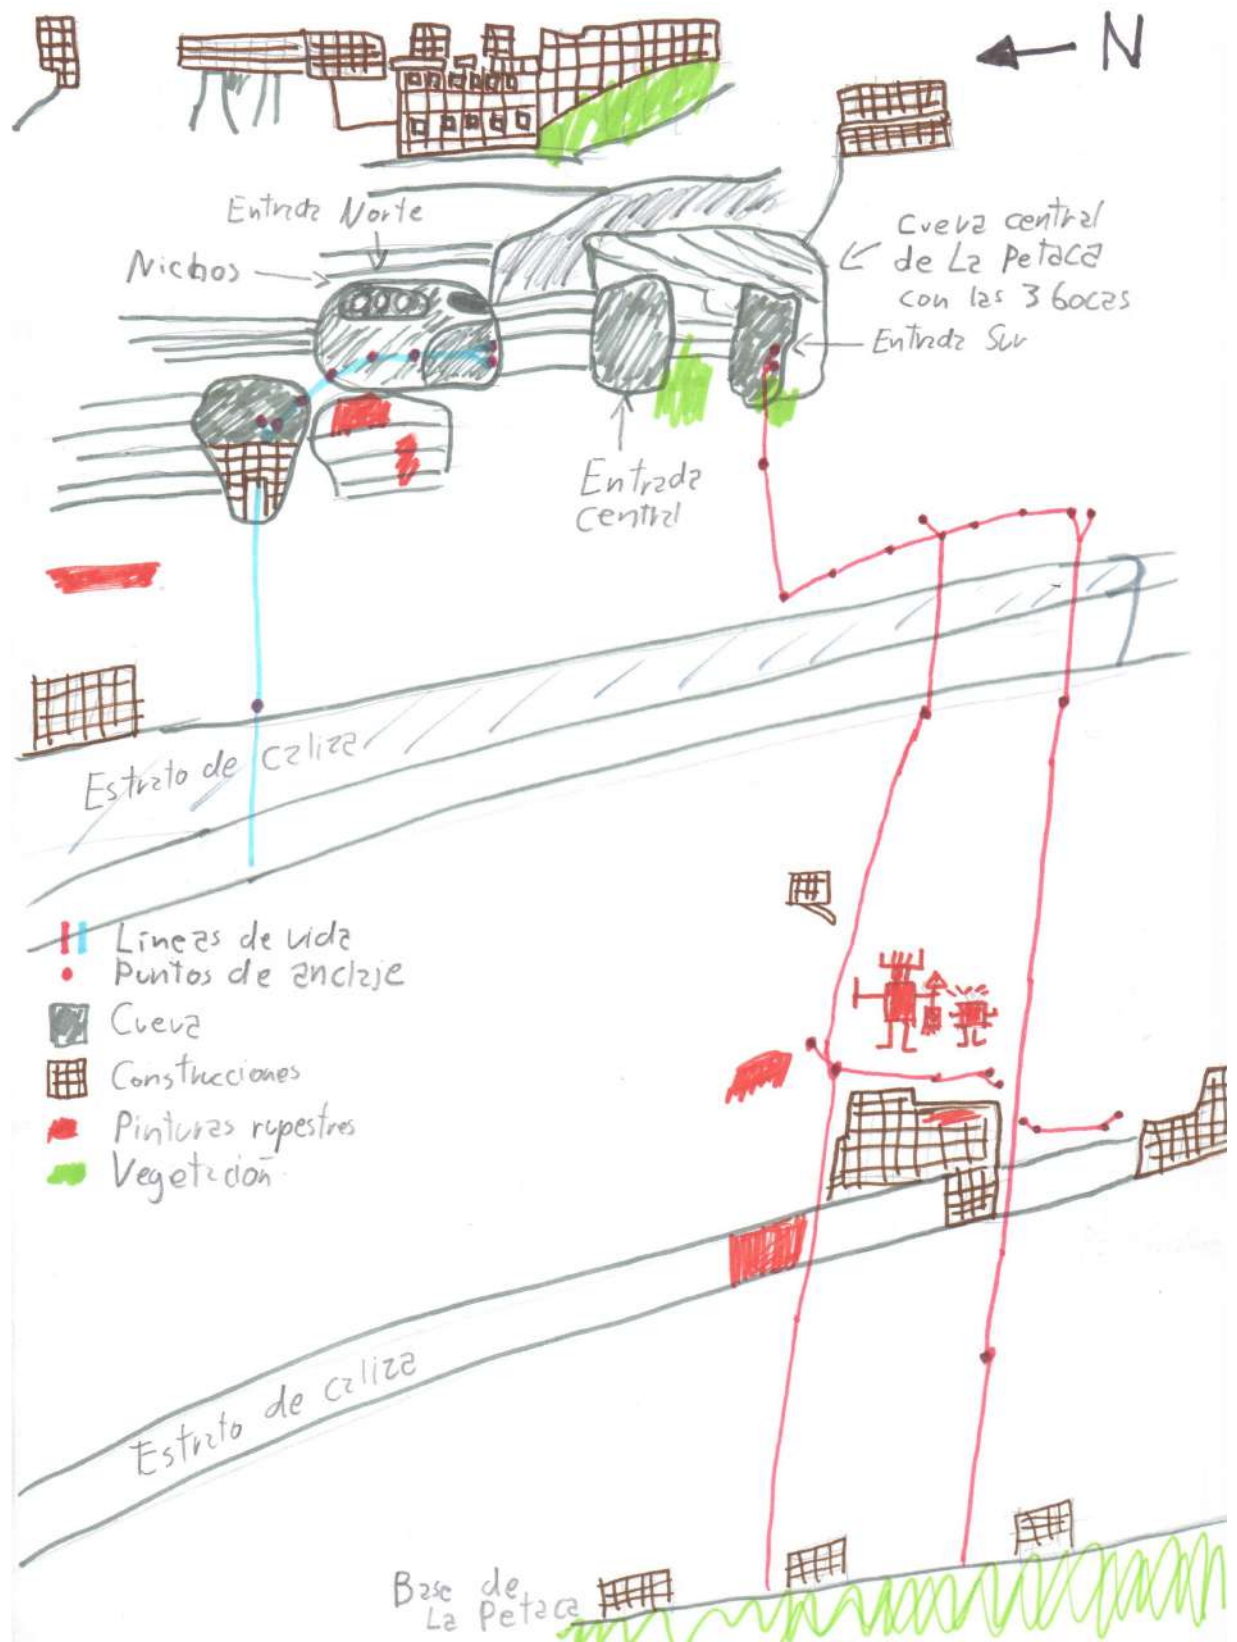 N
Entrada Norte
Nichos
Cueva central
de La Petaca
con las 3 bocas
Entrada Sur
Entrada
Central
Estrato de caliza
Líneas de vida
Puntos de anclaje
Cueva
Construcciones
Pinturas rupestres
Vegetación
Estrato de caliza
Base de
La Petaca